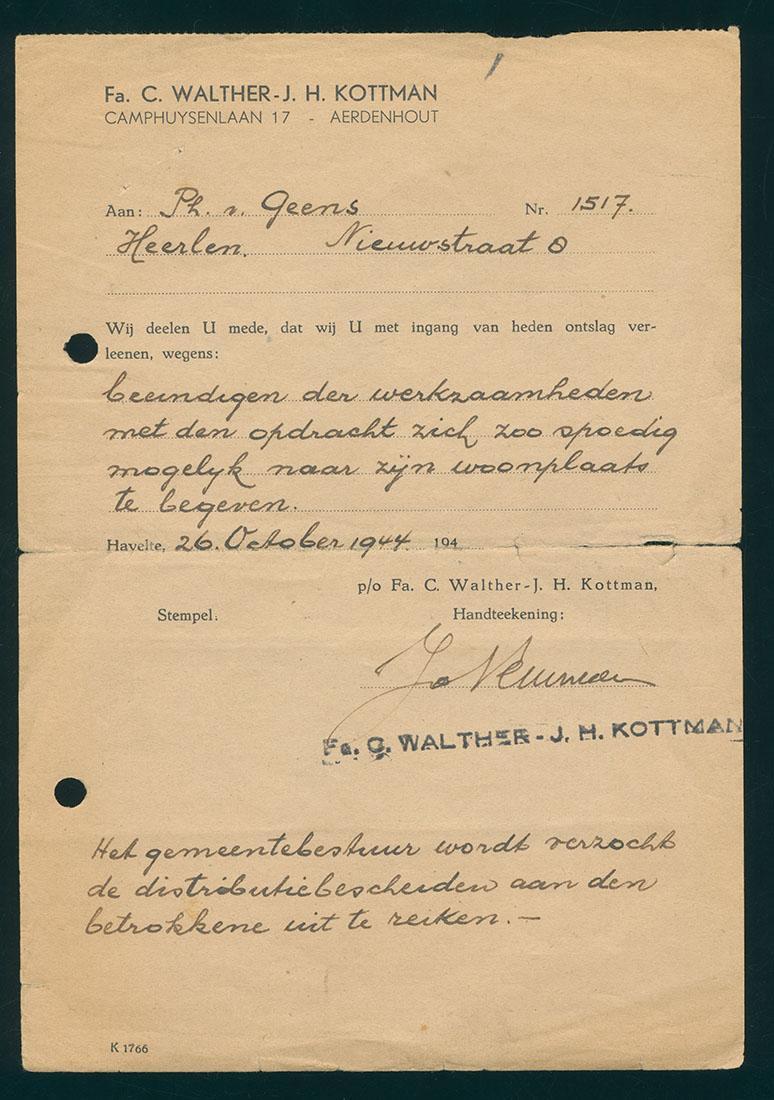 Fa. C. WALTHER-J. H. KOTTMAN
CAMPHUYSENLAAN 17 - AERDENHOUT
Aan: Ph. v. Geens Nr. 1517.
Heerlen. Nieuwstraat 8
Wij deelen U mede, dat wij U met ingang van heden ontslag ver-
leenen, wegens:
beeindigen der werkzaamheden
met den opdracht zich zoo spoedig
mogelyk naar zijn woonplaats
te begeven.
Havelte, 26. October 1944. 194
p/o Fa. C. Walther-J. H. Kottman,
Stempel: Handteekening:
Fa. C. WALTHER - J. H. KOTTMAN
Het gemeentebestuur wordt verzocht
de distributiebescheiden aan den
betrokkene uit te reiken. -
K 1766